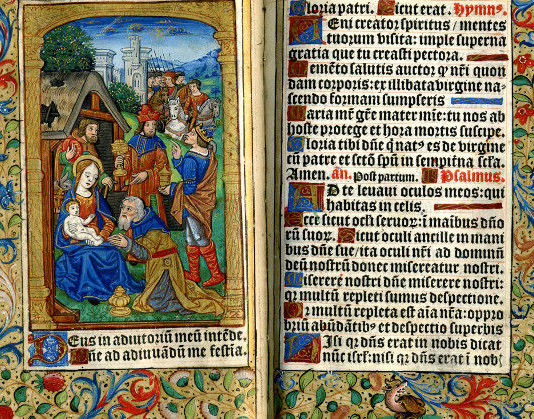 Deus in adiutoriū meū intēde.
Dñe ad adiuvandū me festīa.
Gloria patri. Sicut erat. Hymnꝰ.
Veni creator spiritus / mentes
tuorum visita: imple superna
gratia que tu creasti pectora.
Memēto salutis auctor ꝙ nr̄i quon
dam corporis: ex illibata virgine na⸗
scendo formam sumpseris
Maria mr̄ gr̄e mater mīe: tu nos ab
hoste protege et hora mortis suscipe.
Gloria tibi dn̄e ꝙ natꝰ es de virgine
cū patre et sctō spū in sempitna scl̄a.
Amen. añ. Post partum. Psalmus.
AD te levavi oculos meos: qui
habitas in celis.
Ecce sicut ocl̄i servoꝝ: ī maībus dñoꝝ
rū suoꝝ. Sicut oculi ancille in mani
bus dñe sue / ita oculi nr̄i ad dominū
deū nostrū donec misereatur nostri.
Miserere nostri dñe miserere nostri:
qꝛ multū repleti sumus despectione.
Qꝛ multū repleta est aīa nr̄a: oppro
briū abūdātibꝰ et despectio superbis
Nisi qꝛ dñs erat in nobis dicat
nūc isrl̄: nisi qꝛ dñs erat ī nob